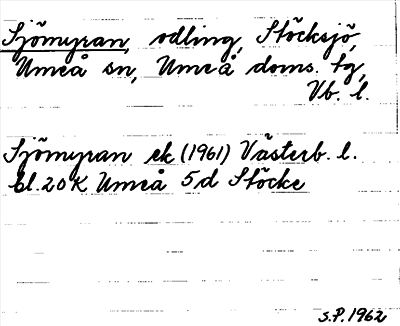 Sjömyran, odling, Stöcksjö,
Umeå sn, Umeå doms. tg,
Vb. l.
Sjömyran ek (1961) Västerb. l.
bl. 20K Umeå 5d Stöcke
S.P. 1962